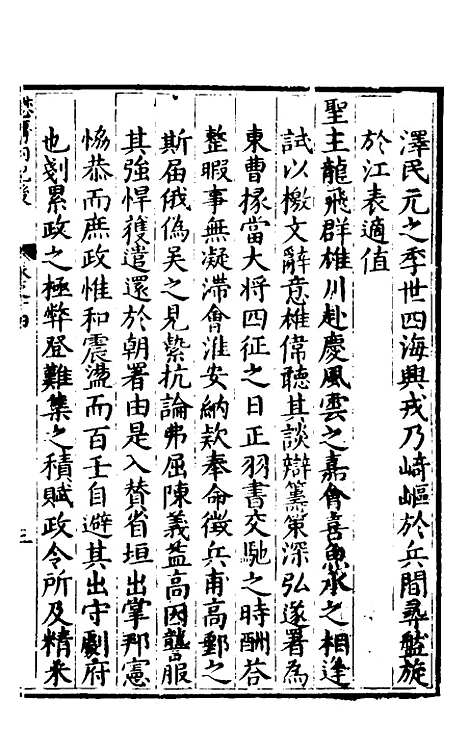 澤民元之季世四海興戎乃崎嶇於兵間彞盤旋
於江表適值
聖主龍飛群雄川赴慶風雲之嘉會喜魚水之相逢
試以檄文辭意雄偉聽其談辯籌策深弘遂署為
東曹掾當大将四征之日正羽書交馳之時酬荅
整暇事無凝滯會淮安納款奉命徵兵甫高郵之
斯届俄偽吴之見縶抗論弗屈陳義益高因讋服
其強悍獲遣還於朝署由是入賛省垣出掌邦憲
恊恭而庶政惟和震盪而百壬自避其出守劇府
也剗累政之極弊登難集之積賦政令所及精来
三